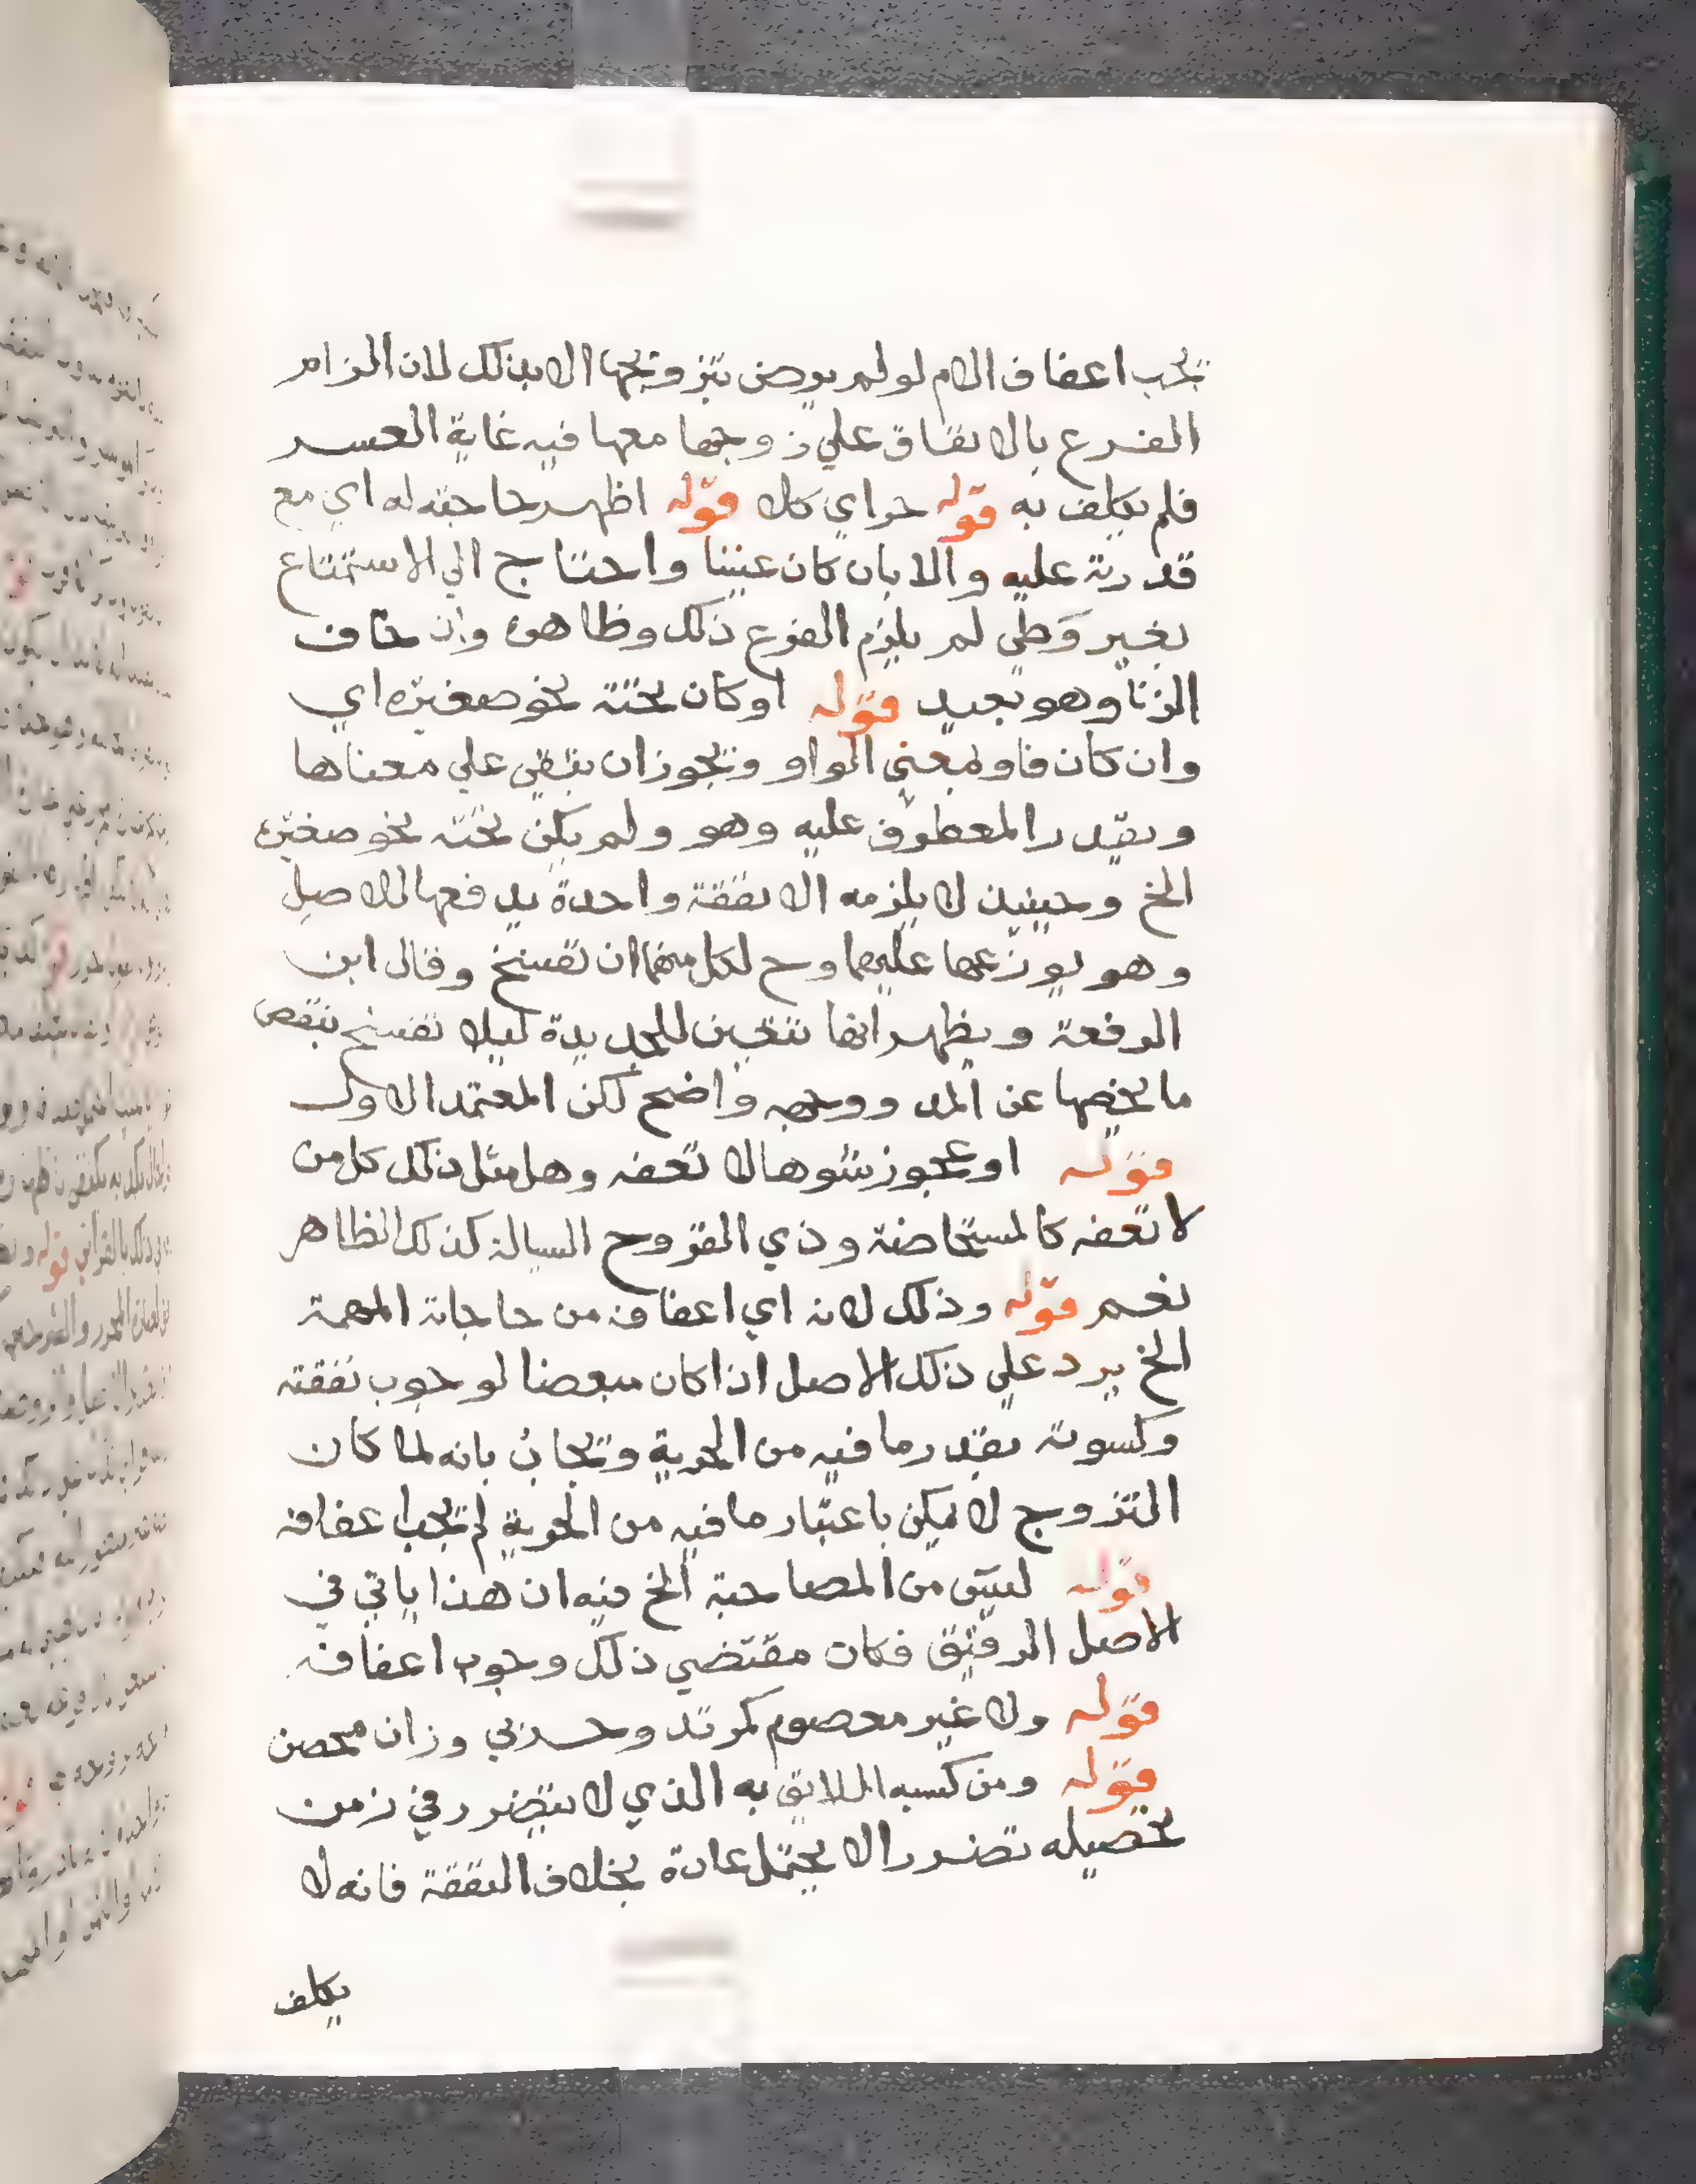 يجب اعفاف الام لو لم يرض بتزويجها الا بذلك لان الزام
الفرع بالانفاق علي زوجها معها فيه غاية العسر
فلم يكلف به قوله حر اي كله قوله اظهر حاجته له اي مع
قدرته عليه والا بان كان عنينا واحتاج الي الاستمتاع
بغير وطي لم يلزم الفرع ذلك وظاهره وان خاف
الزنا وهو بعيد قوله او كان تحته نحو صغيرة اي
وان كان فاو بمعني الواو ويجوز ان يبقي علي معناها
ويقدر المعطوف عليه وهو ولم يكن تحته نحو صغيره
الخ وحينيذ لا يلزمه الا نفقة واحدة يدفعها للاصل
وهو يوزعها عليهما وح لكل منهما ان تفسخ وقال ابن
الرفعة ويظهر انها تتعين للجديدة ليلا تفسخ بنقص
ما يخصها عن المد ووجهه واضح لكن المعتمد الاول
قوله او عجوز شوها لا تعفه وهل مثل ذلك كل من
لا تعفه كالمستحاضة وذي القروح السيالة كذلك الظاهر
نعم قوله وذلك لانه اي اعفافه من حاجاته المهمة
الخ يرد علي ذلك الاصل اذا كان مبعضا لوجوب نفقته
وكسوته بقدر ما فيه من الحرية ويجاب بانه لما كان
التزوج لا يمكن باعتبار ما فيه من الحرية لم يجب اعفافه
قوله ليس من المصاحبة الخ فيه ان هذا ياتي في
الاصل الرقيق فكان مقتضي ذلك وجوب اعفافه
قوله ولا غير معصوم كمرتد وحربي وزان محصن
قوله ومن كسبه اللايق به الذي لا يتضرر في زمن
تحصيله تضررا لا يحتمل عادة بخلاف النفقة فانه لا
يكلف